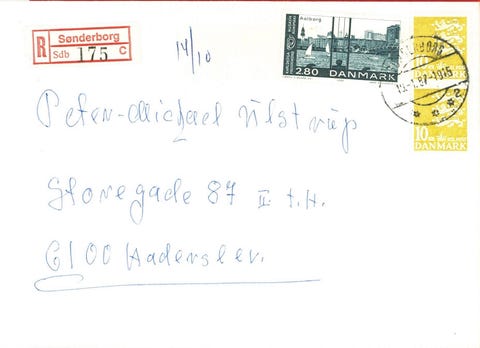 R Sønderborg
Sdb 175 C
14/10
Aalborg
2.80 DANMARK
10
DANMARK
Peter-Michael Ulstrup
Storegade 87 II t.h.
6100 Haderslev.